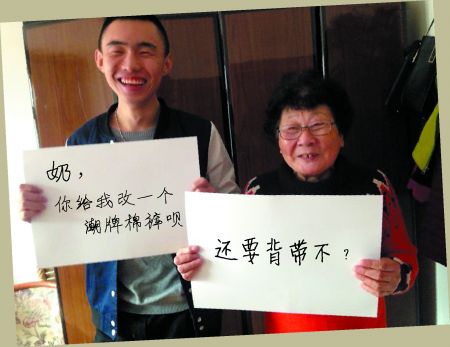 奶，
你给我改一个
潮牌棉裤呗
还要背带不？